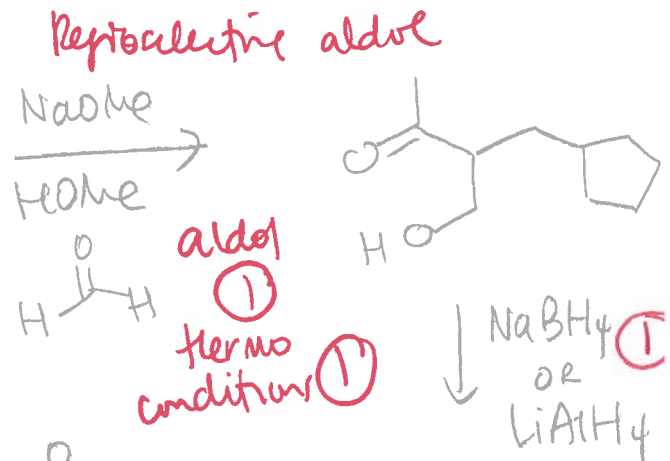 Regioselective aldol
NaOMe
HOMe
O
H H
aldol
1
thermo
conditions 1
O
H O
NaBH4 1
OR
LiAlH4
O